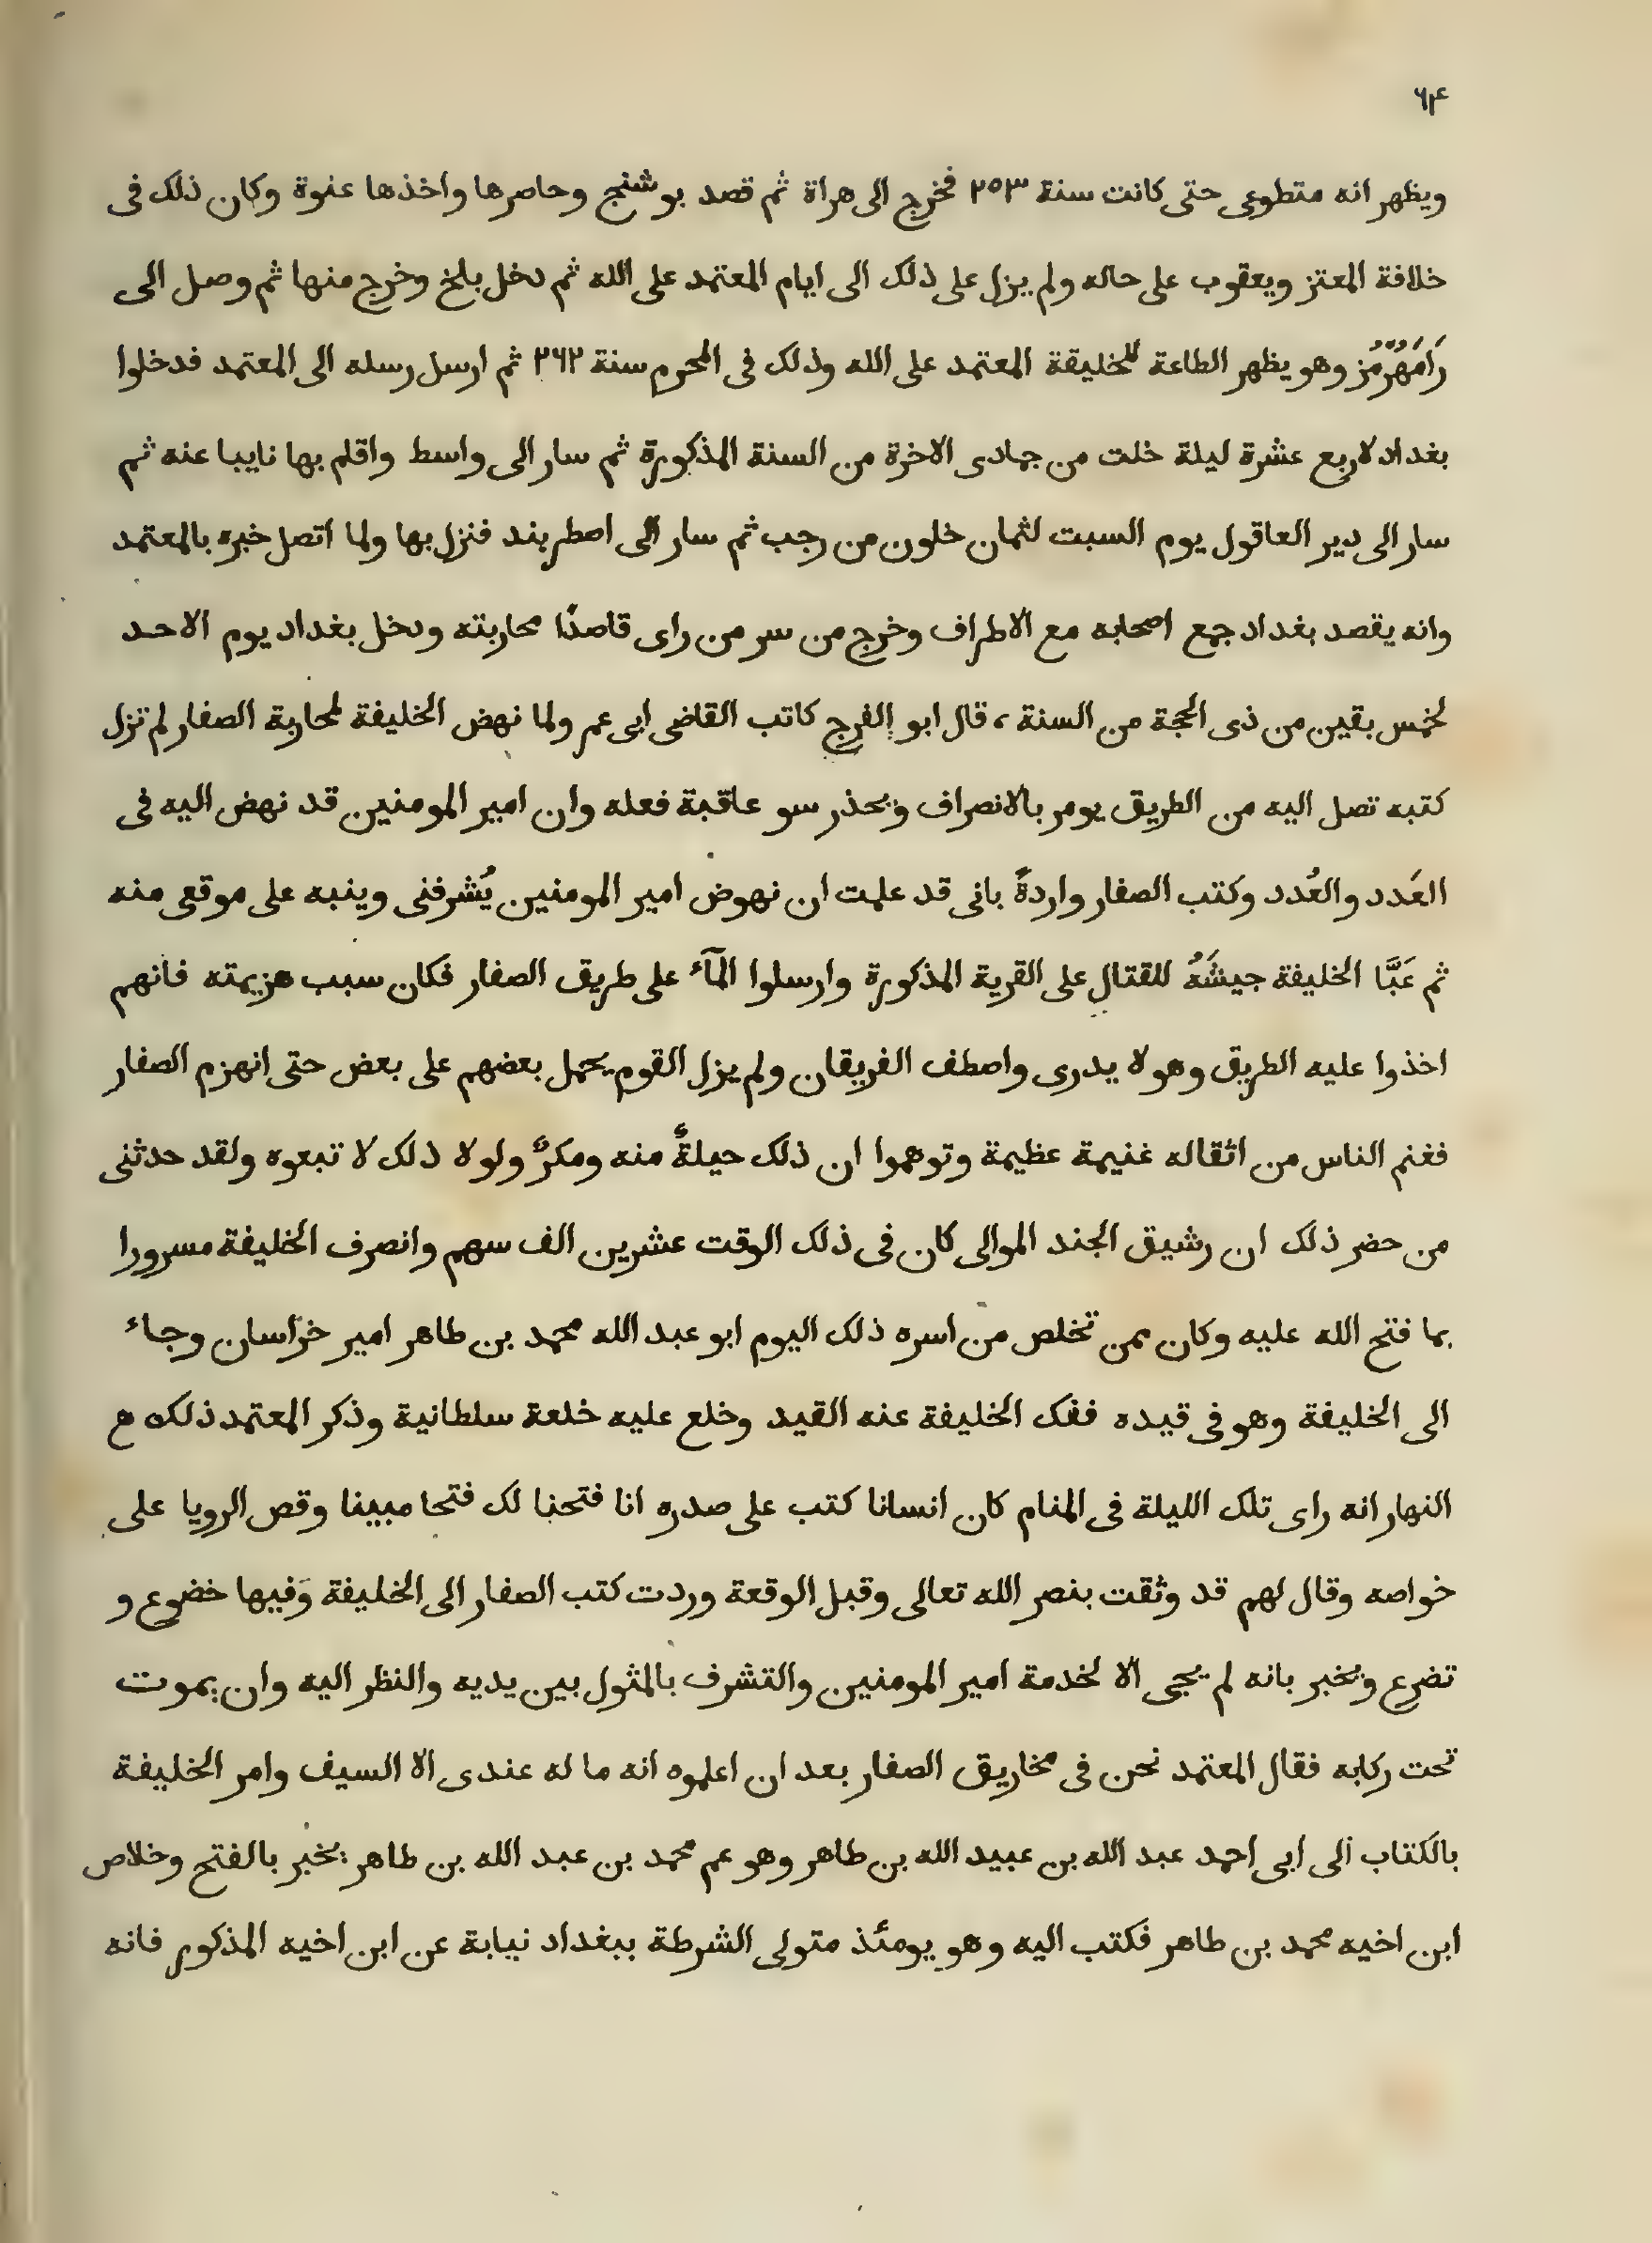 ٦٤
ويظهر انه متطوعى حتى كانت سنة ٢٥٣ فخرج الى هراة ثم قصد بوشنج وحاصرها واخذها عنوة وكان ذلك فى
خلافة المعتز ويعقوب على حاله ولم يزل على ذلك الى ايام المعتمد على الله ثم دخل بلخ وخرج منها ثم وصل الى
رَامَهُرْمُز وهو يظهر الطاعة للخليقة المعتمد على الله وذلك فى المحرم سنة ٢٦٢ ثم ارسل رسله الى المعتمد فدخلوا
بغداد لاربع عشرة ليلة خلت من جمادى الاخرة من السنة المذكورة ثم سار الى واسط واقام بها نايبا عنه ثم
سار الى دير العاقول يوم السبت لثمان خلون من رجب ثم سار الى اصطربند فنزل بها ولما اتصل خبره بالمعتمد
وانه يقصد بغداد جمع اصحابه مع الاطراف وخرج من سر من راى قاصدًا محاربته ودخل بغداد يوم الاحد
لخمس بقين من ذى الحجة من السنة ، قال ابو الفرج كاتب القاضى ابى عمر ولما نهض الخليفة لمحاربة الصفار لم تزل
كتبه تصل اليه من الطريق يومر بالانصراف ويحذر سو عاقبة فعله وان امير المومنين قد نهض اليه فى
العَدد والعُدد وكتب الصفار واردةً بانى قد علمت ان نهوض امير المومنين يُشرفنى وينبه على موقعى منه
ثم عَبَّا الخليفة جيشَهُ للقتال على القرية المذكورة وارسلوا المآء على طريق الصفار فكان سبب هزيمته فانهم
اخذوا عليه الطريق وهو لا يدرى واصطف الفريقان ولم يزل القوم يحمل بعضهم على بعض حتى انهزم الصفار
فغنم الناس من اثقاله غنيمة عظيمة وتوهموا ان ذلك حيلةٌ منه ومكرٌ ولولا ذلك لا تبعوه ولقد حدثنى
من حضر ذلك ان رشيق الجند الموالى كان فى ذلك الوقت عشرين الف سهم وانصرف الخليفة مسرورا
بما فتح الله عليه وكان ممن تخلص من اسره ذلك اليوم ابو عبد الله محمد بن طاهر امير خراسان وجاء
الى الخليفة وهو فى قيده ففك الخليفة عنه القيد وخلع عليه خلعة سلطانية وذكر المعتمد ذلك
النهار انه راى تلك الليلة فى المنام كان انسانا كتب على صدره انا فتحنا لك فتحا مبينا وقص الرويا على
خواصه وقال لهم قد وثقت بنصر الله تعالى وقبل الوقعة وردت كتب الصفار الى الخليفة وَفيها خضوع و
تضرع ويخبر بانه لم يجى الا لخدمة امير المومنين والتشرف بالمثول بين يديه والنظر اليه وان يموت
تحت ركابه فقال المعتمد نحن فى مخاريق الصفار بعد ان اعلموه انه ما له عندى الا السيف وامر الخليفة
بالكتاب الى ابى احمد عبد الله بن عبيد الله بن طاهر وهو عم محمد بن عبد الله بن طاهر يخبر بالفتح وخلاص
ابن اخيه محمد بن طاهر فكتب اليه وهو يومئذ متولى الشرطة ببغداد نيابة عن ابن اخيه المذكور فانه